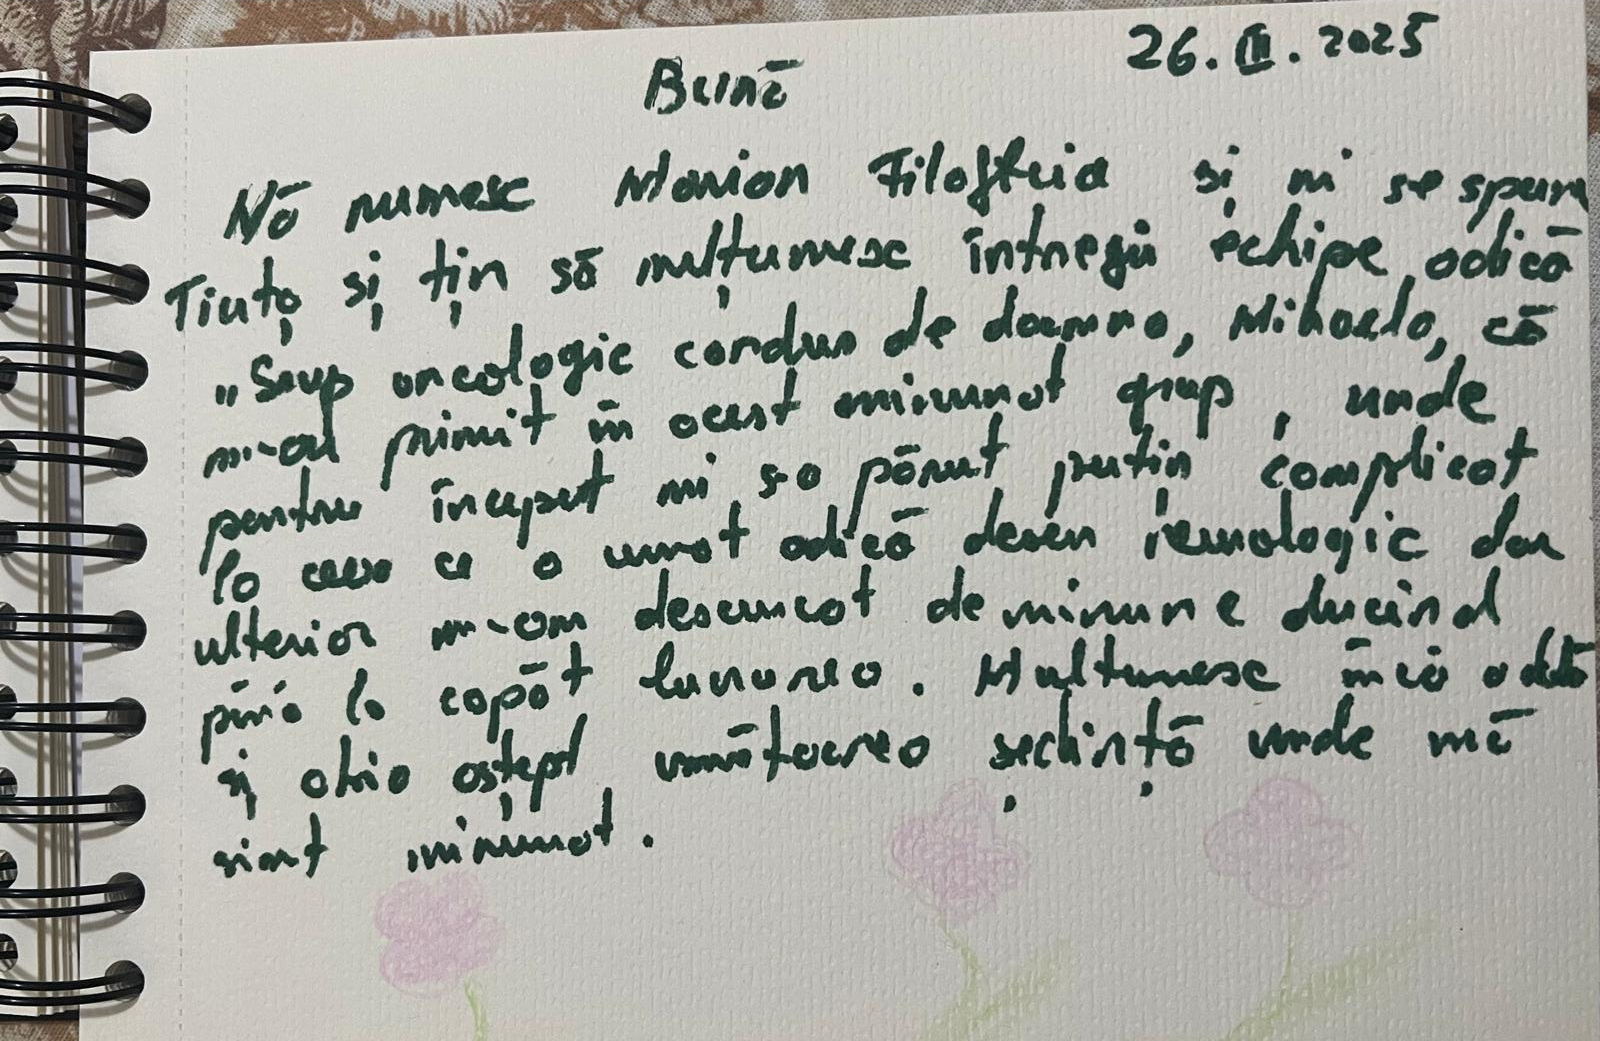 26.III.2025
Bună
Mă numesc Marian Filofteia si mi se spune
Tiuța și țin să mulțumesc întregii echipe adică
„Suup oncologic condus de doamna, Mihaela, că
m-au primit în acest minunat grup, unde
pentru început mi s-a părut puțin complicat
la ceea ce a urmat adică desen remologic dar
ulterior m-am descurcat de minune ducînd
pînă la capăt lucrarea. Multumesc încă odată
și abia aștept următoarea ședință unde mă
simt minunat.